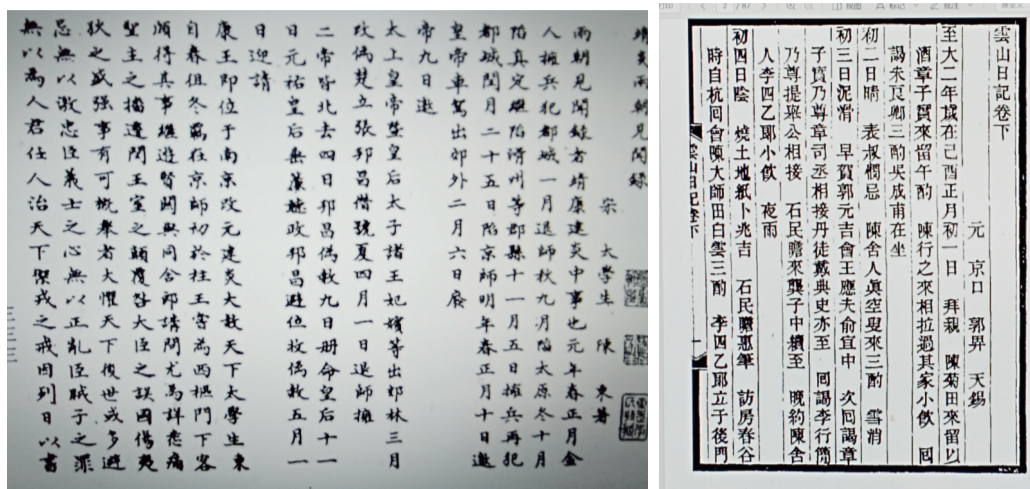 靖炎兩朝見聞錄
宋 大學生 陳 東 著
兩朝見聞錄者靖康建炎中事也元年春正月金
人擁兵犯都城一月退師秋九月陷太原冬十月
陷真定繼陷滑州等郡縣十一月五日擁兵再犯
都城閏月二十五日陷京師明年春正月十日邀
皇帝車駕出郊外二月六日廢
帝九日邀
太上皇帝暨皇后太子諸王妃嬪等出郊林三月
偽楚立張邦昌僭號夏四月一日退師擁
二帝皆北去四日邦昌偽敕九日册命皇后十一
日元祐皇后垂簾聽政邦昌避位收偽敕五月一
日迎請
康王即位于南京改元建炎大赦天下太學生東
自春徂冬寓在京師初於柱王害為西樞門下客
頗得其事繼遊賢關與同舍郎講問尤為詳悉痛
聖主之播遷閔王室之顛覆咎大臣之誤國傷夷
狄之盛強事有可慨舉者大懼天下後世或多避
忌無以激忠臣義士之心無以正亂臣賊子之罪
無以為人君任人治天下禦戎之戒因列日以書
雲山日記卷下
元 京口 郭畀 天錫
至大二年歲在己酉正月初一日 拜親 陳菊田來留以
酒章子貢來留午酌 陳行之來相拉過其家小飲 囘
謁朱艮卿三酌吳成甫在坐
初二日晴 表叔憫忌 陳舍人真空叟來三酌 雪消
初三日泥滑 早賀郭元吉會王應夫俞宜中 次囘謁章
子貢乃尊章司丞相接丹徒戴典史亦至 囘謁李行簡
乃尊提舉公相接 石民瞻來龔子中續至 晚約陳舍
人李四乙耶小飲 夜雨
初四日陰 燒土地紙卜兆吉 石民瞻惠筆 訪房春谷
時自杭回會陳大師田白雲三酌 李四乙耶立于後門
雲山日記卷下